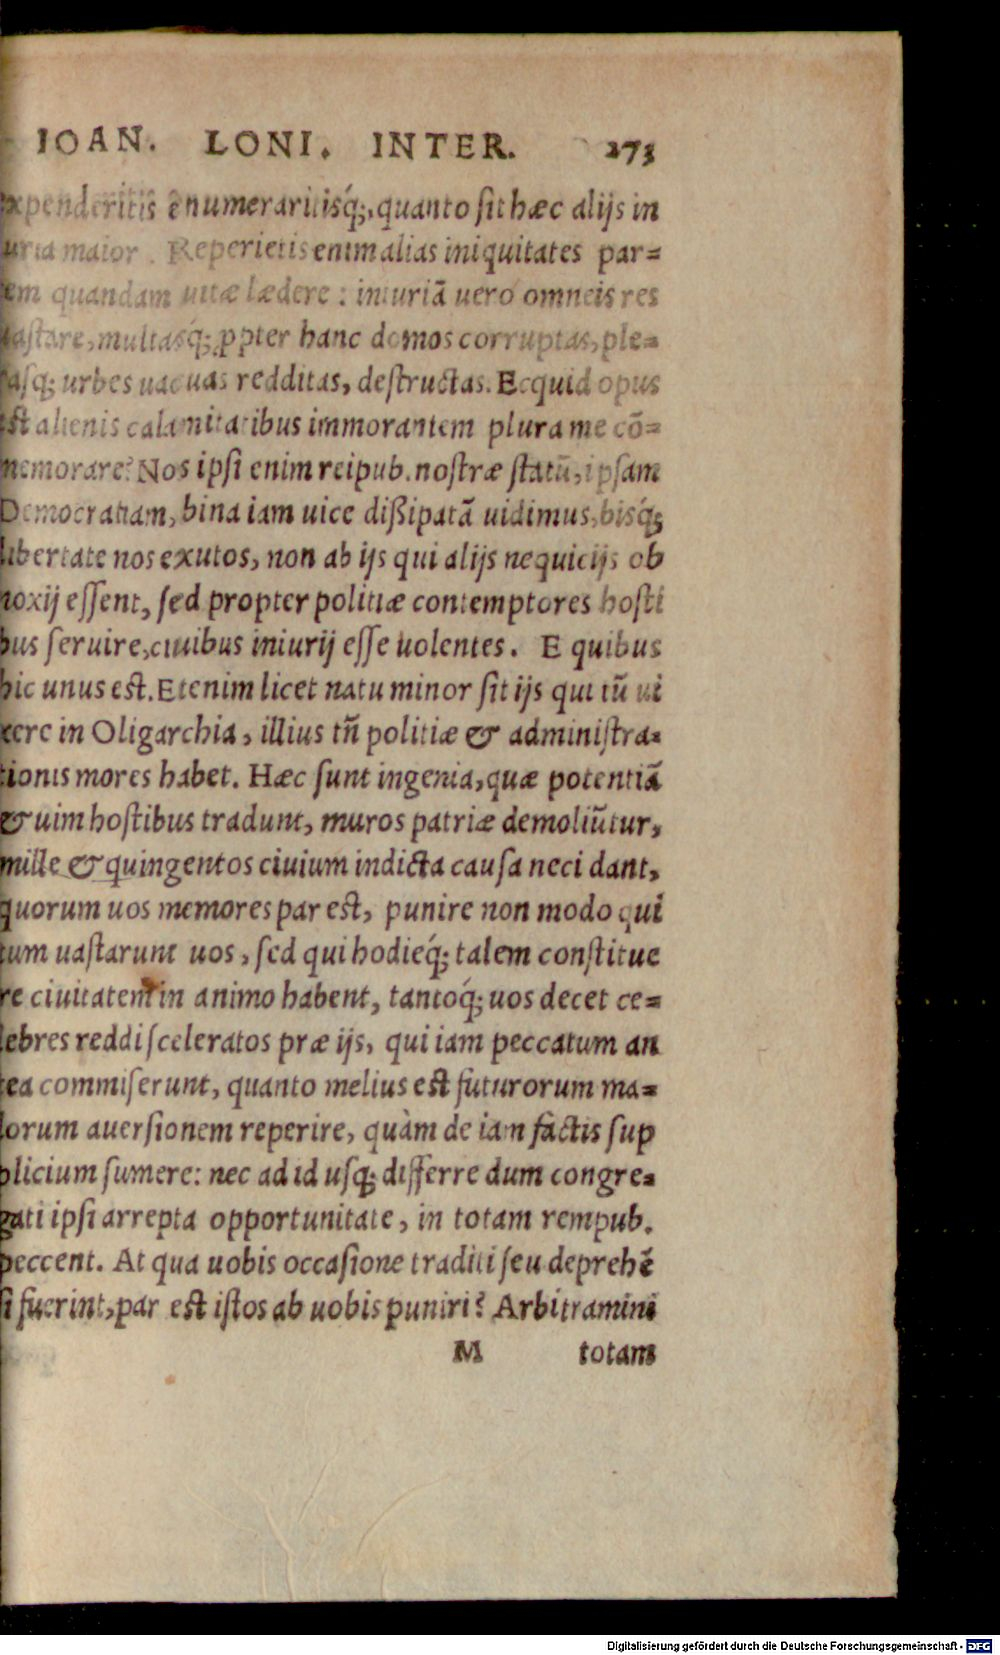 IOAN. LONI. INTER. 273
xpenderitis enumeraritisq́;, quanto ſit hæc alijs in
uria maior. Reperietis enim alias iniquitates par=
em quandam uitæ lædere : iniuriā uero omneis res
uaſtare, multasq́; ꝓpter hanc domos corruptas, ple=
rasq; urbes uacuas redditas, deſtructas. Ecquid opus
eſt alienis calamitatibus immorantem plura me cō=
memorare? Nos ipſi enim reipub. noſtræ ſtatū, ipſam
Democratiam, bina iam uice dißipatā uidimus, bisq́;
libertate nos exutos, non ab ijs qui alijs nequicijs ob
noxij eſſent, ſed propter politiæ contemptores hoſti
bus ſeruire, ciuibus iniurij eſſe uolentes. E quibus
hic unus est. Etenim licet natu minor ſit ijs qui tū ui
xere in Oligarchia, illius tñ politiæ & adminiſtra=
tionis mores habet. Hæc ſunt ingenia, quæ potentiā
& uim hoſtibus tradunt, muros patriæ demoliūtur,
mille & quingentos ciuium indicta cauſa neci dant,
quorum uos memores par eſt, punire non modo qui
tum uaſtarunt uos, ſed qui hodieq́; talem conſtitue
re ciuitatem in animo habent, tantoq́; uos decet ce=
lebres reddi ſceleratos præ ijs, qui iam peccatum an
tea commiſerunt, quanto melius eſt futurorum ma=
lorum auerſionem reperire, quàm de iam factis ſup
plicium ſumere: nec ad id uſq; differre dum congre=
gati ipſi arrepta opportunitate, in totam rempub.
peccent. At qua uobis occaſione traditi ſeu deprehē
ſi fuerint, par eſt iſtos ab uobis puniri? Arbitramini
M totam
Digitalisierung gefördert durch die Deutsche Forschungsgemeinschaft - DFG